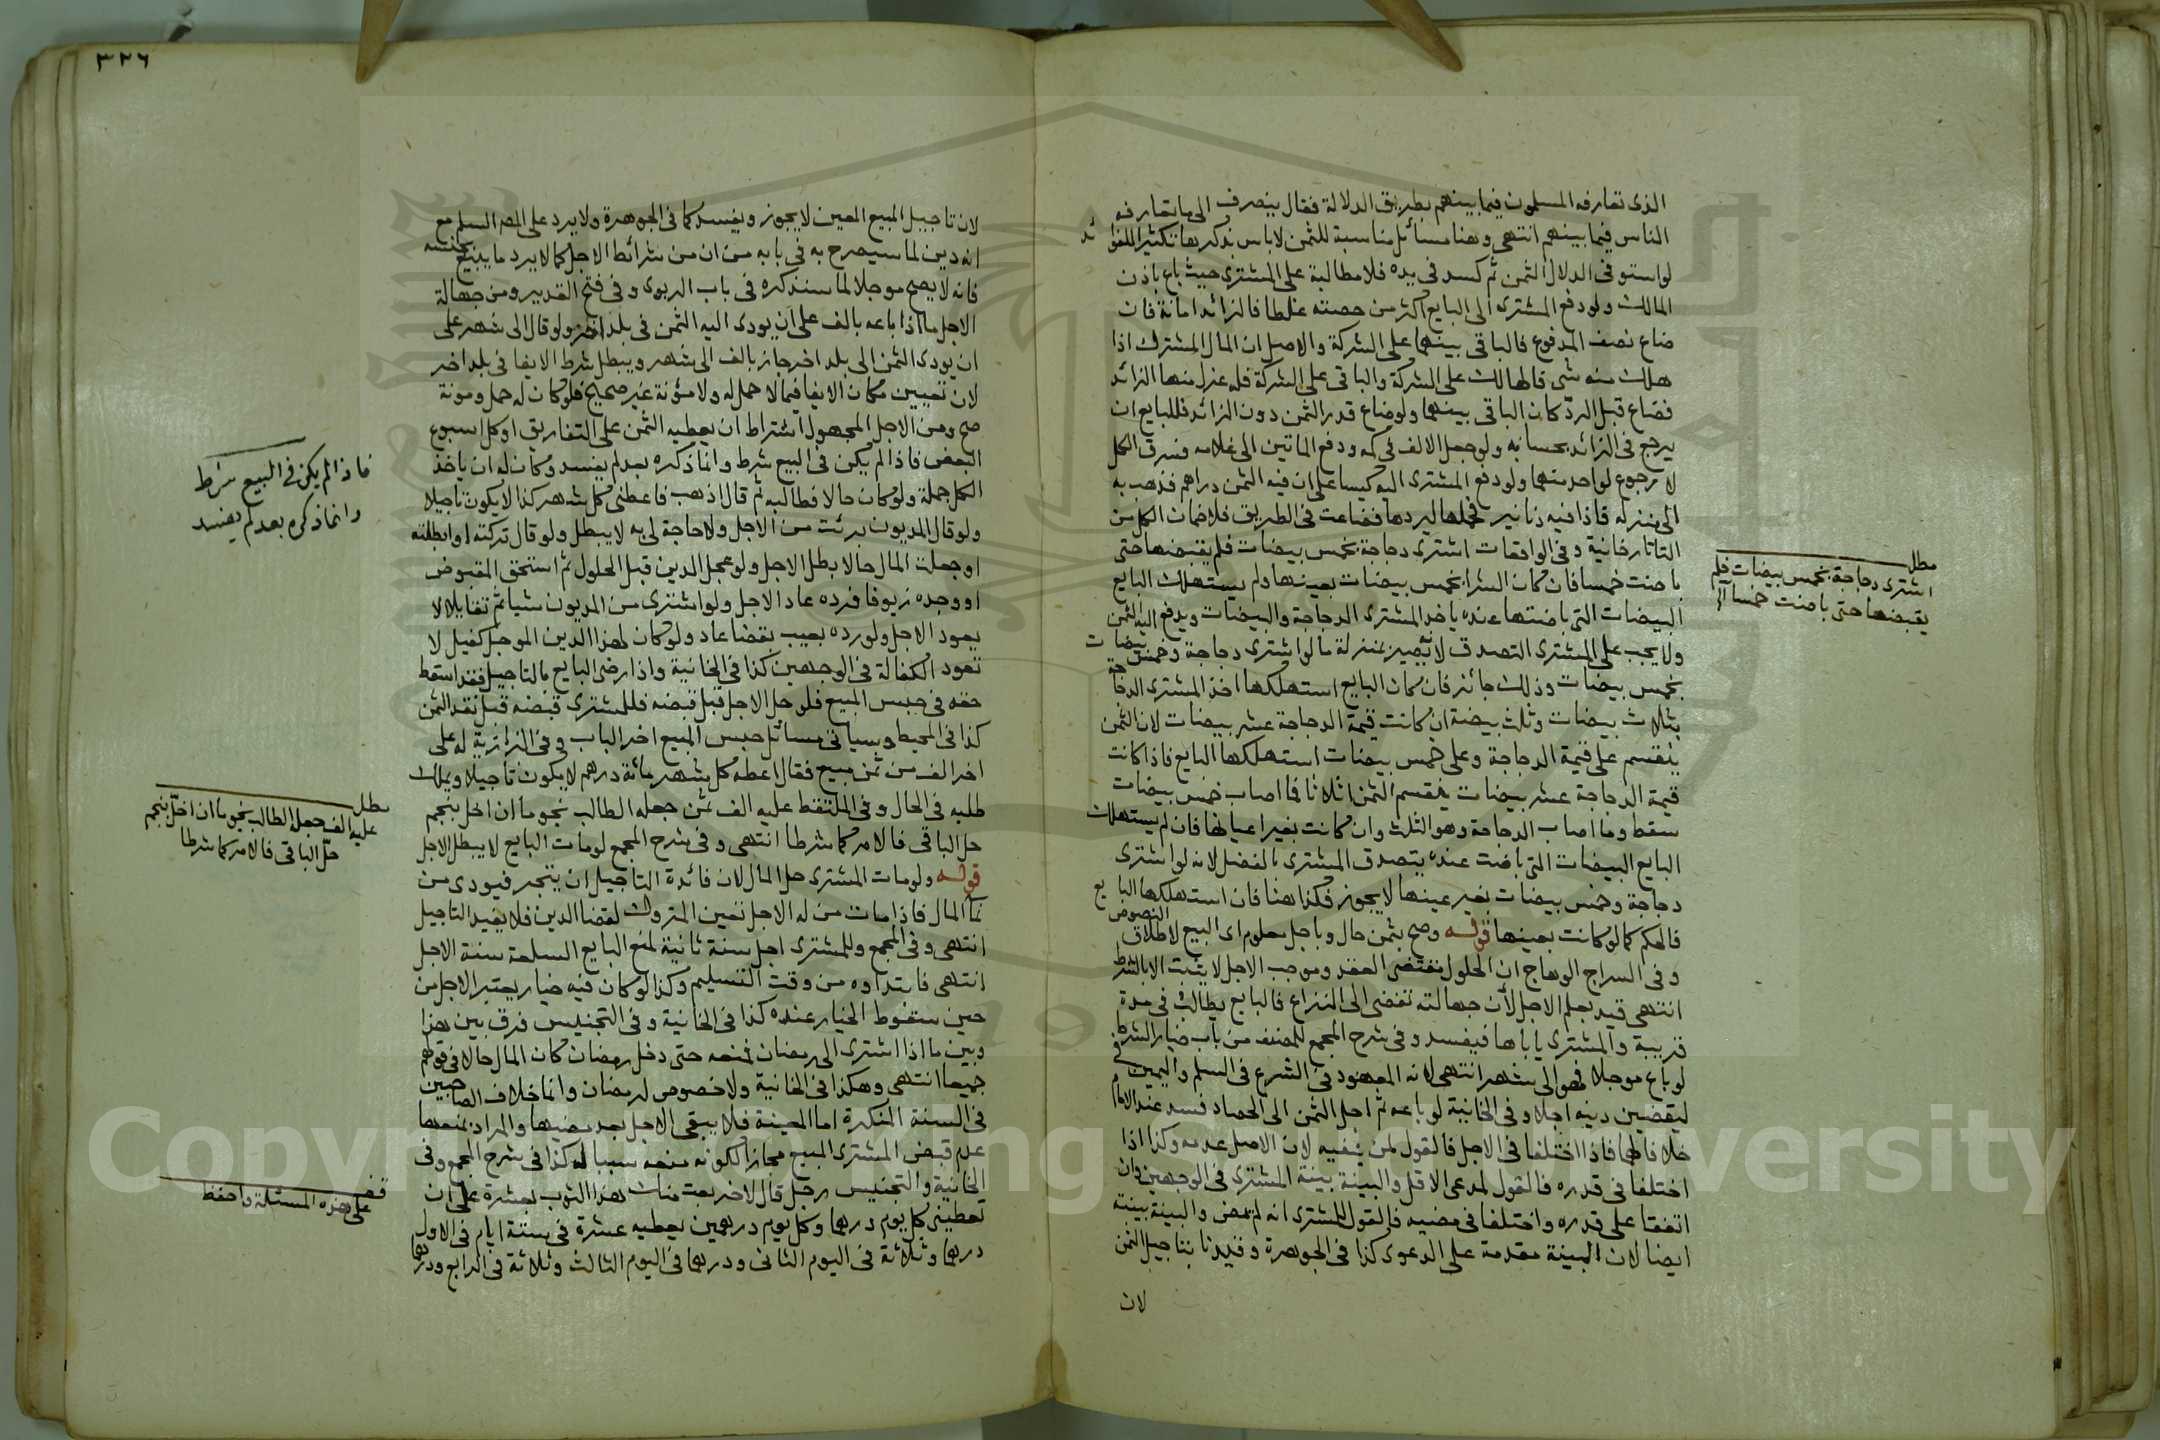 الذى تعارفه المسلمون فيما بينهم بطريق الدلالة فقال ينصرف الى ما يتعارفه
الناس فيما بينهم انتهى وهنا مسائل مناسبة للثمن لاباس بذكرها تكثيرا للفوائد
لو استوفى الدلال الثمن ثم كسد فى يده فلا مطالبة على المشترى حيث باع باذن
المالك ولو دفع المشترى الى البايع اكثر من حصته غلطا فالزائد امانة فان
ضاع نصف المدفوع فالباقى بينهما على الشركة والاصل ان المال المشترك اذا
هلك منه شى فالهالك على الشركة والباقى على الشركة فلو عزل منها الزائد
فضاع قبل الرد كان الباقى بينهما ولو ضاع قدر الثمن دون الزائد فللبايع ان
يرجع فى الزائد بحسابه ولو جعل الالف فى كمه ودفع الماتين الى غلامه فسرق الكل
لا رجوع لواحد منهما ولو دفع المشترى اليه كيسا على ان فيه الثمن دراهم فذهب به
الى منزله فاذا فيه دنانير فحملها ليردها فضاعت فى الطريق فلا ضمان الكل من
التاتارخانية وفى الواقعات اشترى دجاجة بخمس بيضات فلم يقبضها حتى
باضت خمسا فان كان الشرا بخمس بيضات بعينها ولم يستهلك البايع
البيضات التى باضتها عنده ياخذ المشترى الدجاجة والبيضات ويدفع اليه الثمن
ولا يجب على المشترى التصدق لانه يصير بمنزلة ما لو اشترى دجاجة وخمس بيضات
بخمس بيضات وذلك جائز فان كان البايع استهلكها اخذ المشترى الدجاجة
بثلاث بيضات وثلث بيضة ان كانت قيمة الدجاجة عشر بيضات لان الثمن
ينقسم على قيمة الدجاجة وعلى خمس بيضات استهلكها البايع فاذا كانت
قيمة الدجاجة عشر بيضات ينقسم الثمن اثلاثا فما اصاب خمس بيضات
سقط وما اصاب الدجاجة وهو الثلث وان كانت بغير اعيانها فان لم يستهلك
البايع البيضات التى باضت عنده يتصدق المشترى بالفضل لانه لو اشترى
دجاجة وخمس بيضات بغير عينها لا يجوز فكذا هنا فان استهلكها البايع
فالحكم كما لو كانت بعينها قوله وصح بثمن حال وباجل معلوم اى البيع لاطلاق النصوص
وفى السراج الوهاج ان الحلول مقتضى العقد وموجب الاجل لا يثبت الا بالشرط
انتهى قيد بعلم الاجل لان جهالته تفضى الى النزاع فالبايع يطالبه فى مدة
قريبة والمشترى ياباها فيفسد وفى شرح المجمع للمصنف من باب خيار الشرط
لو باع موجلا فهو الى شهر انتهى لانه المعهود فى الشرع فى السلم واليمين فى
ليقضين دينه اجلا وفى الخانية لو باعه ثم اجل الثمن الى الحصاد فسد عند الامام
خلافا لهما فاذا اختلفا فى الاجل فالقول لمن ينفيه لان الاصل عدمه وكذا اذا
اختلفا فى قدره فالقول لمدعى الاقل والبينة بينة المشترى فى الوجهين وان
اتفقا على قدره واختلفا فى مضيه فالقول للمشترى انه لم يمض والبينة بينته
ايضا لان البينة مقدمة على الدعوى كذا فى الجوهرة وقيدنا بتاجيل الثمن
لان
مطلب
اشترى دجاجة بخمس بيضات فلم
يقبضها حتى باضت خمسا الخ
٣٢٦
لان تاجيل المبيع المعين لا يجوز ويفسد كما فى الجوهرة ولا يرد على المص السلم مع
انه دين لما سيصرح به فى بابه من ان من شرائط الاجل كما لا يرد ما يبيع بجنسه
فانه لا يصح موجلا لما سنذكره فى باب الربوى وفى فتح القدير ومن جهالة
الاجل ما اذا باعه بالف على ان يودى اليه الثمن فى بلد اخر ولو قال الى شهر على
ان يودى الثمن الى بلد اخر جاز بالف الى شهر ويبطل شرط الايفا فى بلد اخر
لان تعيين مكان الايفا فيما لا حمل له ولا مؤنة غير صحيح فلو كان له حمل ومونة
صح ومن الاجل المجهول اشتراط ان يعطيه الثمن على التفاريق او كل اسبوع
البعض فاذا لم يكن فى البيع شرط وانما ذكره بعد لم يفسد وكان له ان ياخذ
الكل جملة ولو كان حالا فطالبه ثم قال اذهب فاعطنى كل شهر كذا لا يكون تاجيلا
ولو قال المديون برئت من الاجل ولا حاجة لى به لا يبطل ولو قال تركته او ابطلته
او جعلت المال حالا بطل الاجل ولو عجل الدين قبل الحلول ثم استحق المقبوض
او وجده زيوفا فرده عاد الاجل ولو اشترى من المديون شيا ثم تقايلا لا
يعود الاجل ولو رده بعيب بقضا عاد ولو كان لهذا الدين الموجل كفيل لا
تعود الكفالة فى الوجهين كذا فى الخانية واذا رضى البايع بالتاجيل فقد اسقط
حقه فى حبس المبيع فلو حل الاجل قبل قبضه فللمشترى قبضه قبل نقد الثمن
كذا فى المحيط وسياتى مسائل حبس المبيع اخر الباب وفى البزازية له على
اخر الف من ثمن مبيع فقال اعطه كل شهر مائة درهم لا يكون تاجيلا ويملك
طلبه فى الحال وفى الملتقط عليه الف ثمن جعله الطالب نجوما ان اخل بنجم
حل الباقى فالامر كما شرطا انتهى وفى شرح المجمع لو مات البايع لا يبطل الاجل
قوله ولو مات المشترى حل المال لان فائدة التاجيل ان يتجر فيودى من
نما المال فاذا مات من له الاجل تعين المتروك لقضا الدين فلا يفيد التاجيل
انتهى وفى المجمع وللمشترى اجل سنة ثانية لمنع البايع السلعة سنة الاجل
انتهى فابتداوه من وقت التسليم وكذا لو كان فيه خيار يعتبر الاجل من
حين سقوط الخيار عنده كذا فى الخانية وفى التجنيس فرق بين هذا
وبين ما اذا اشترى الى رمضان فمنعه حتى دخل رمضان كان المال حالا فى قولهم
جميعا انتهى وهكذا فى الخانية ولا خصوص لرمضان وانما خلاف الصاحبين
فى السنة المنكرة اما المعينة فلا يبقى الاجل بعد مضيها والمراد بمنعها
عدم قبض المشترى المبيع مجازا لكونه منعه سببا له كذا فى شرح المجمع وفى
الخانية والتجنيس رجل قال لاخر بعت منك هذا الثوب بعشرة على ان
تعطينى كل يوم درهما وكل يوم درهمين يعطيه عشرة فى ستة ايام فى الاول
درهما وثلاثة فى اليوم الثانى ودرهما فى اليوم الثالث وثلاثة فى الرابع ودرهما
فاذا لم يكن فى البيع شرط
وانما ذكره بعد لم يفسد
مطلب
عليه الف جعله الطالب نجوما ان اخل بنجم
حل الباقى فالامر كما شرطا
قف
على هذه المسئلة واحفظ
Copyright © King Saud University